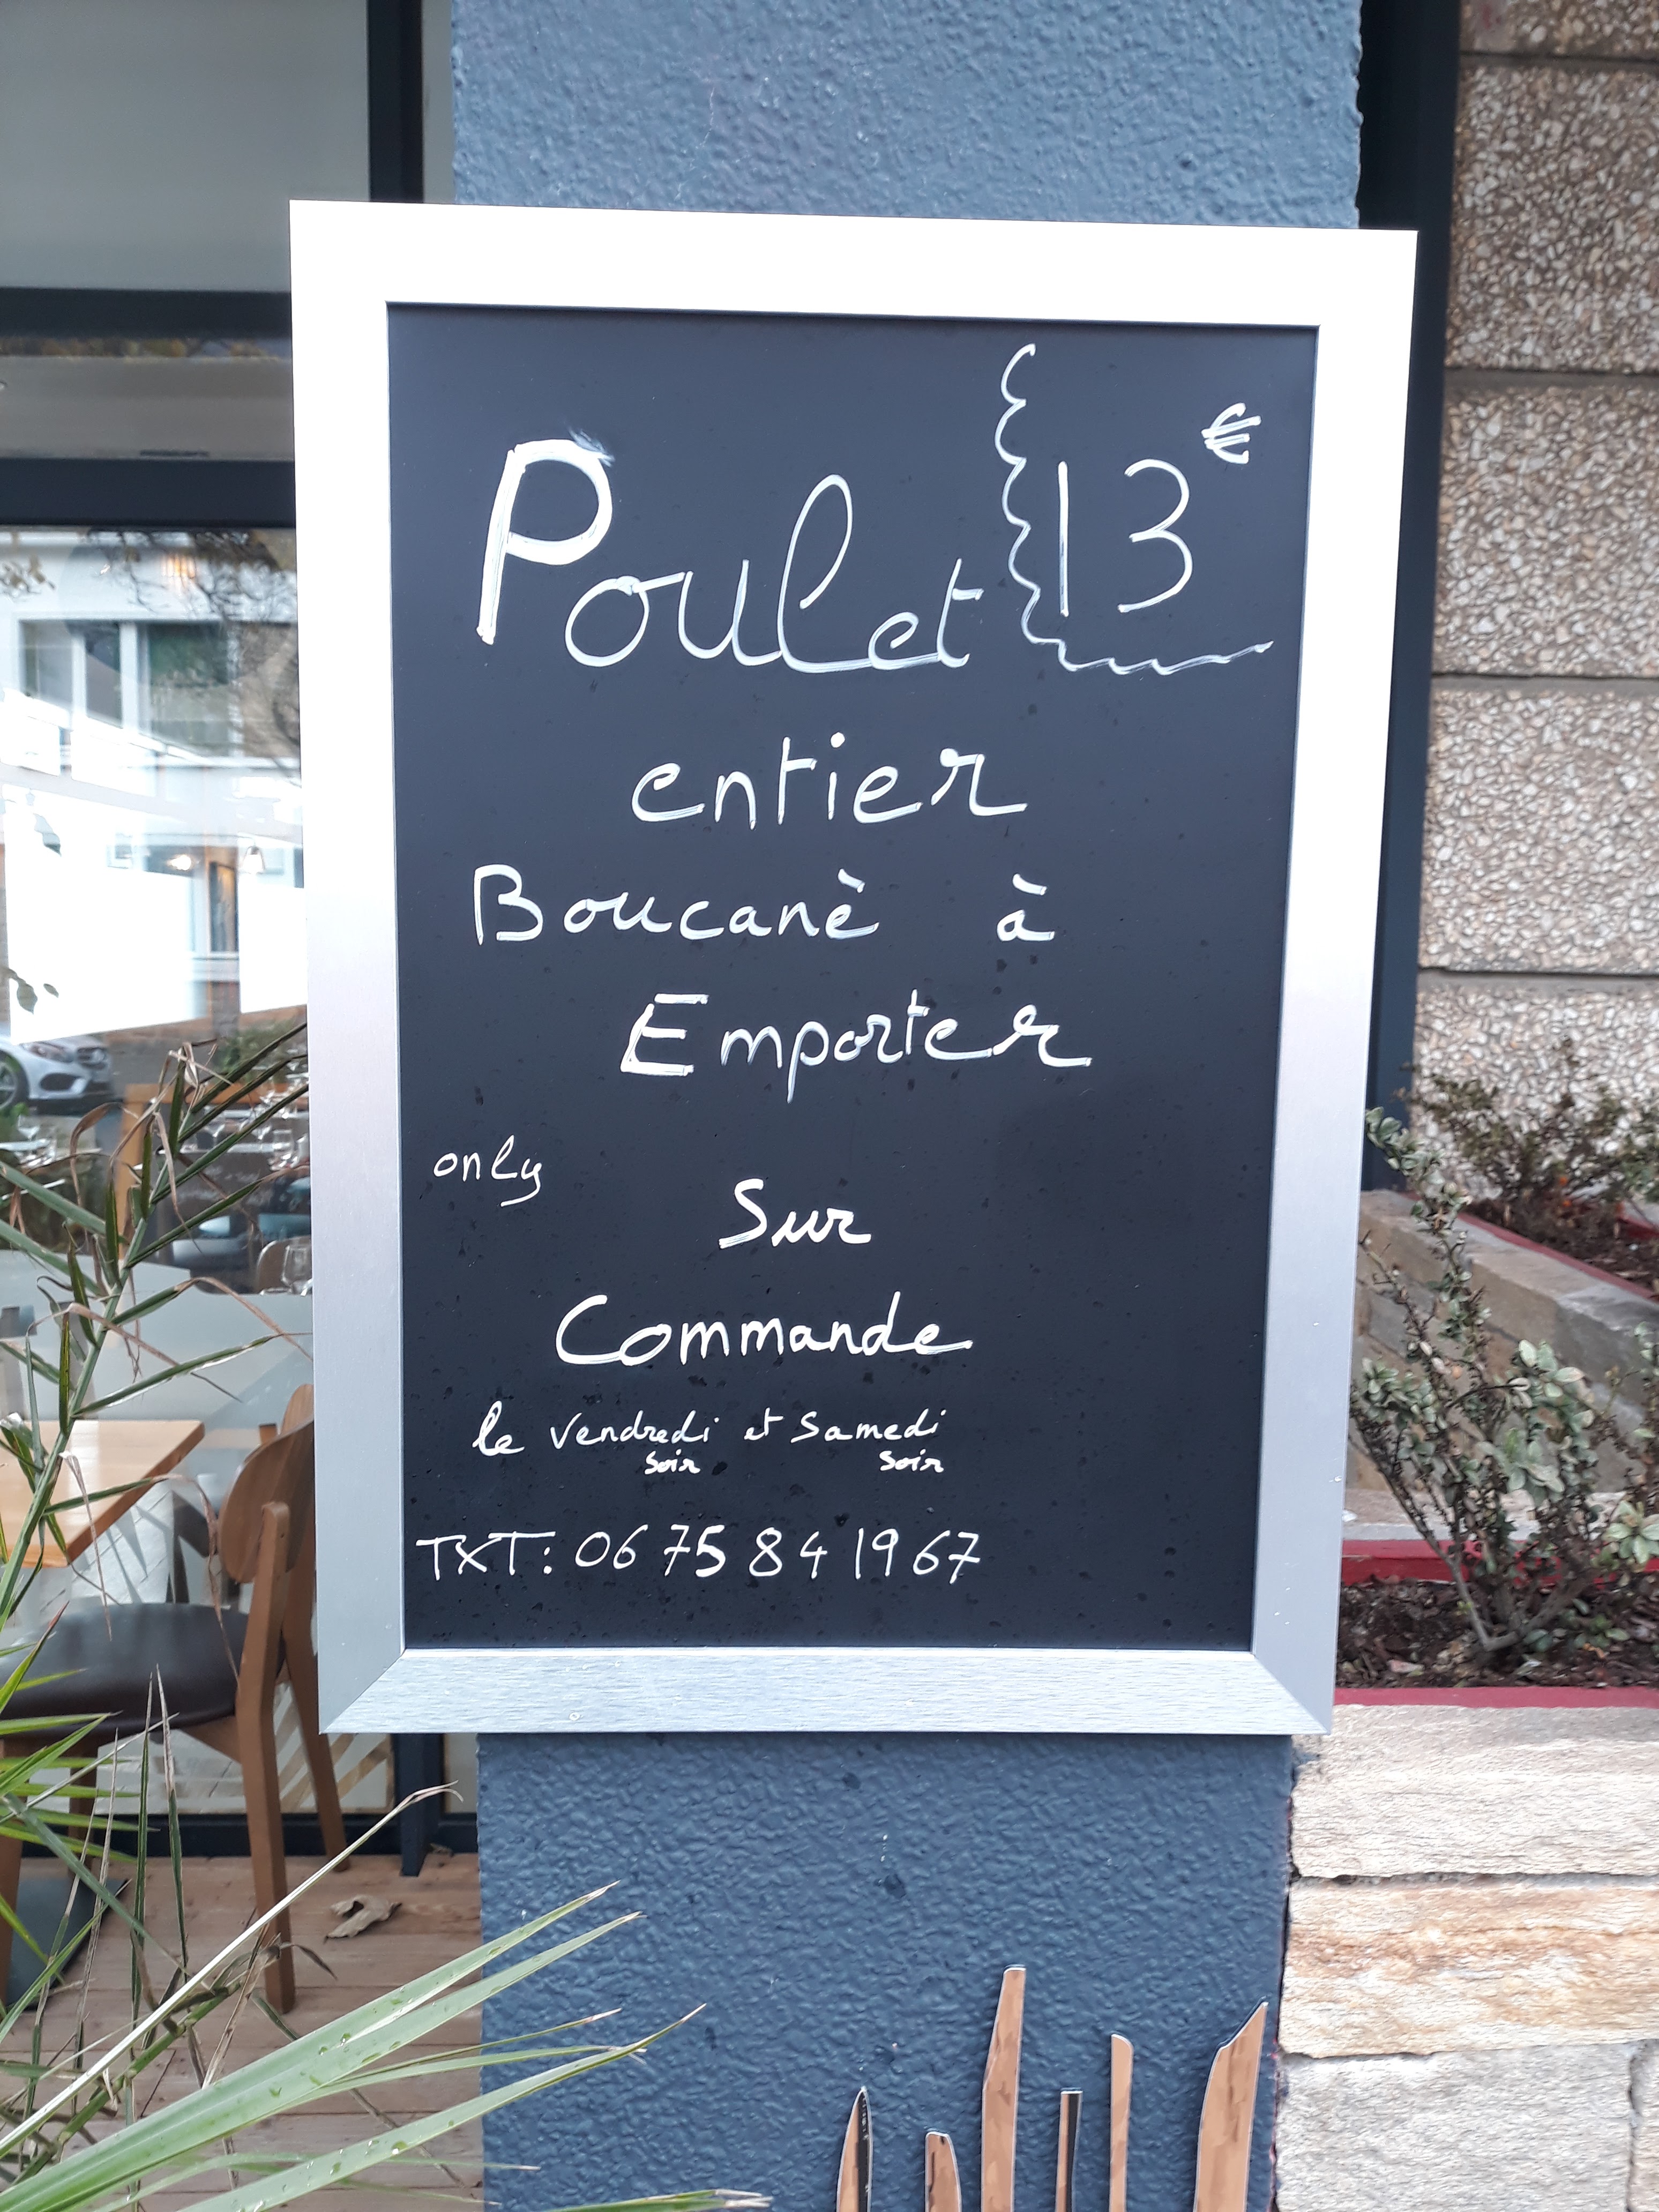 Poulet 13€
entier
Boucanè à
Emporter
only
Sur
Commande
le vendredi et Samedi
soir soir
TXT: 06 75 84 19 67